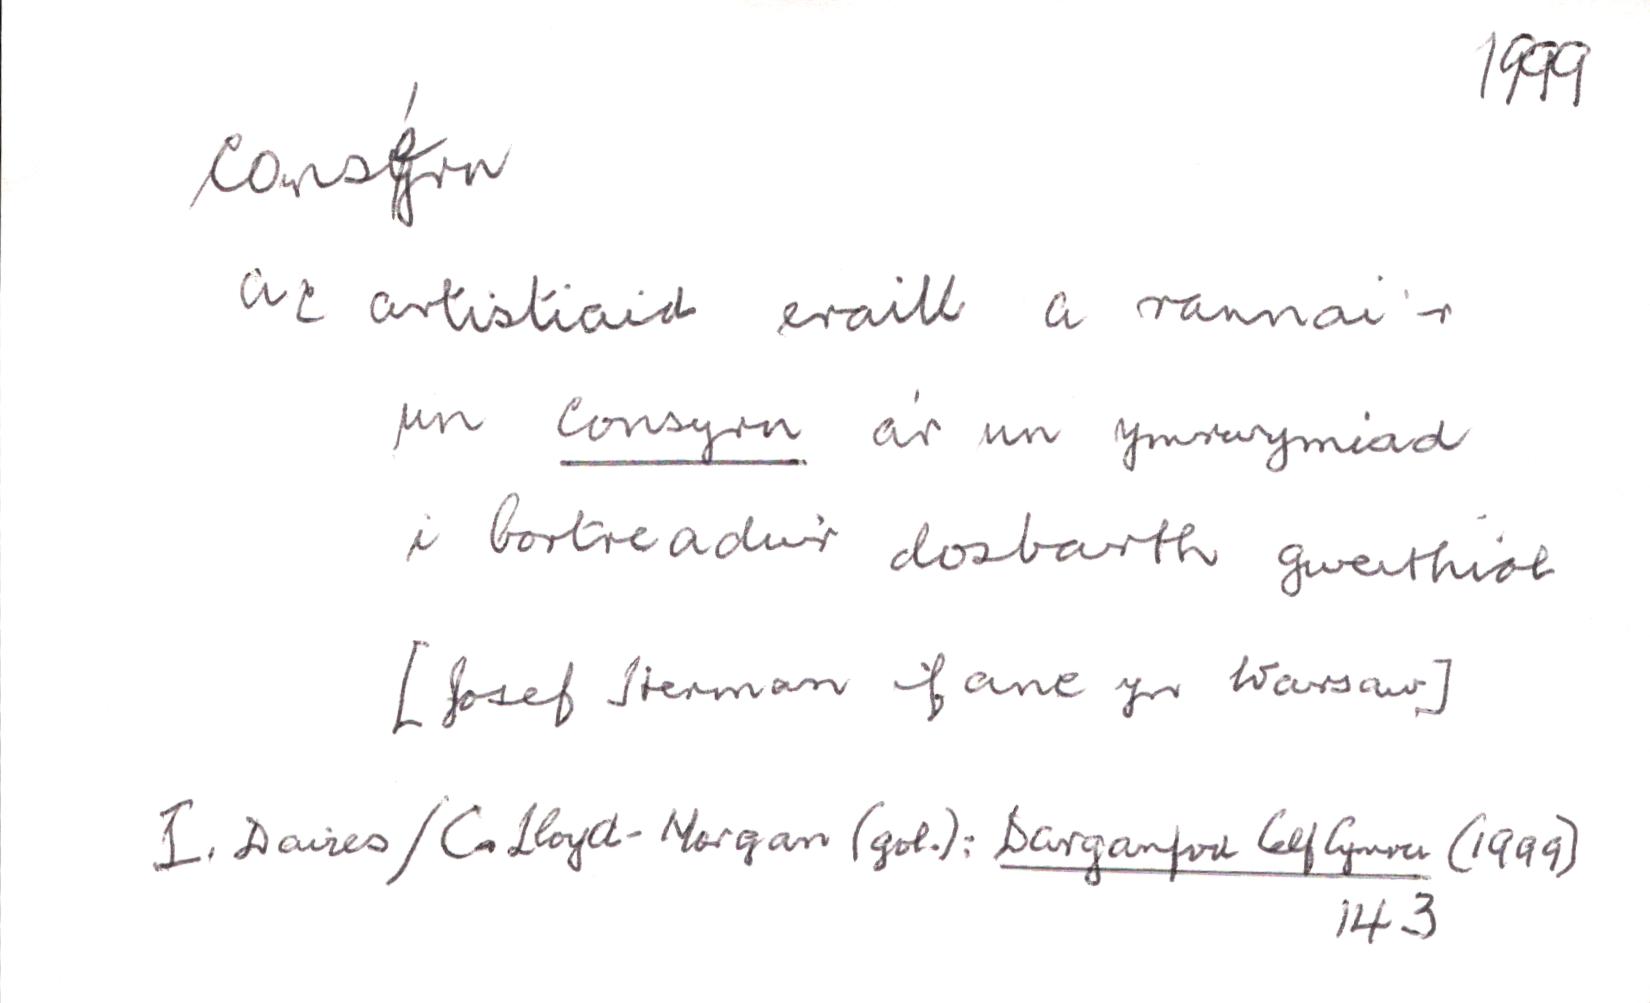 1999
consýrn
ac artistiaid eraill a rannai'r
un consyrn a'r un ymrwymiad
i bortreadu'r dosbarth gweithiol
[Josef Herman ifanc yn Warsaw]
I. Davies/C. Lloyd-Morgan (gol.): Darganfod Celf Cymru (1999)
143